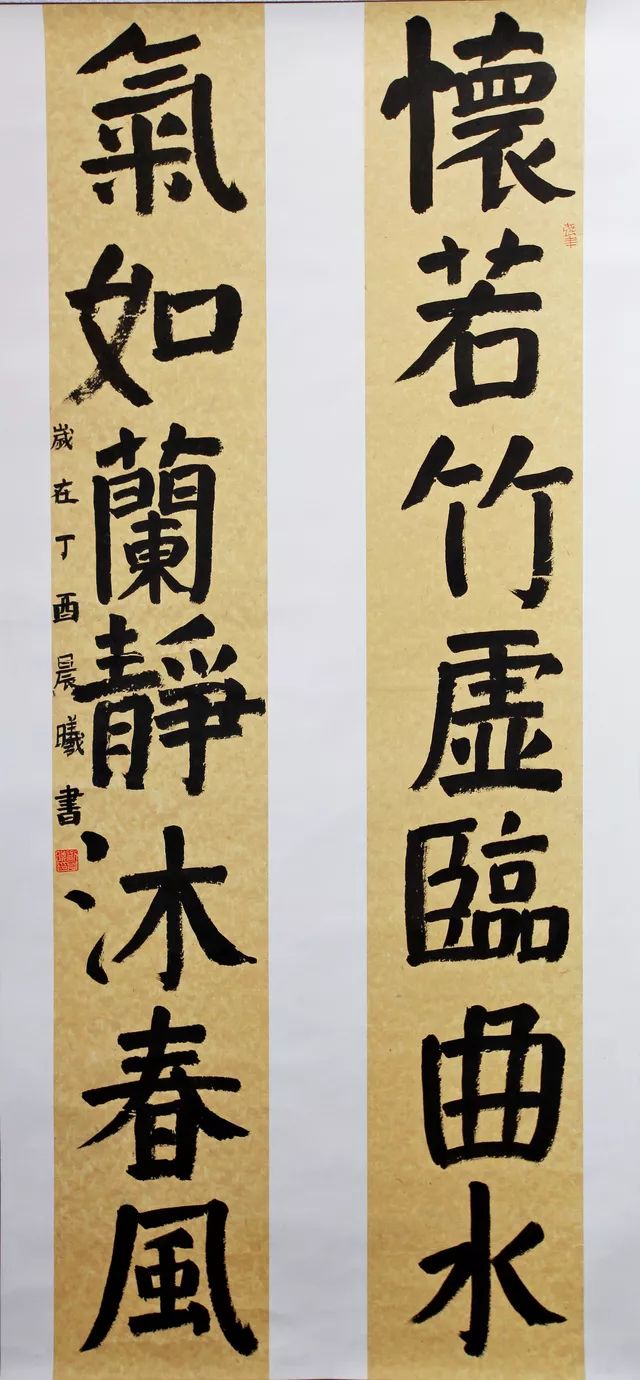 懷若竹虛臨曲水
氣如蘭靜沐春風
歲在丁酉晨曦書